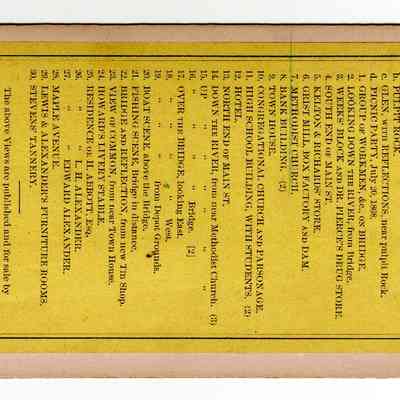 b. PULPIT ROCK.
c. GLEN, WITH REFLECTIONS, near pulpit Rock.
d. PICNIC PARTY, July 20, 1868.
1. GROUP OF WORKMEN, &c., on BRIDGE.
2. LOOKING DOWN THE RIVER, from Bridge.
3. WEEKS' BLOCK AND DR. PIERCE'S DRUG STORE.
4. SOUTH END OF MAIN ST.
5. KELTON & RICHARDS' STORE.
6. GRIST MILL, BOX FACTORY AND DAM.
7. METHODIST CHURCH.
8. BANK BUILDING. (2)
9. TOWN HOUSE.
10. CONGREGATIONAL CHURCH AND PARSONAGE.
11. HIGH SCHOOL BUILDING, WITH STUDENTS. (2)
12. HOTEL.
13. NORTH END OF MAIN ST.
14. DOWN THE RIVER, from near Methodist Church. (3)
15. UP " " " " "
16. " " " " Bridge. [2]
17. OVER THE BRIDGE, looking East.
18. " " " " West.
19. " " " from Depot Grounds.
20. BOAT SCENE, above the Bridge.
21. FISHING SCENE, Bridge in distance.
22. BRIDGE AND REFLECTION, from new Tin Shop.
23. VIEW OF COMMON, from near Town House.
24. HOWARD'S LIVERY STABLE.
25. RESIDENCE OF R. ABBOTT, Esq.
26. " " L. H. ALEXANDER.
27. " " EDWARD ALEXANDER.
28. MAPLE AVENUE.
29. LEWIS & ALEXANDER'S FURNITURE ROOMS.
30. STEVENS' TANNERY.
The above Views are published and for sale by